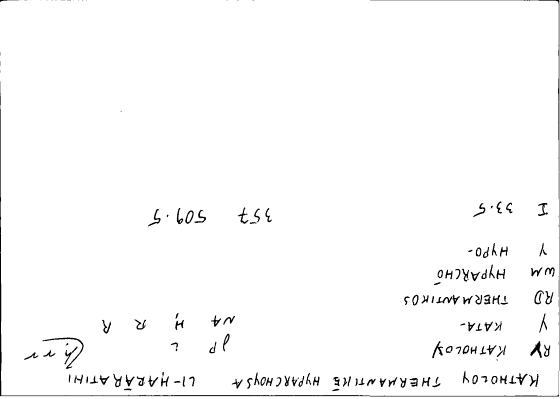 KATHOLOY THERMANTIKĒ HYPARCHOYSA LI-ḤARĀRATIHI
RY KATHOLOY jP L
Y KATA- NA Ḥ R R
RD THERMANTIKOS
WM HYPARCHŌ
Y HYPO-
I 33.5 357 509.5